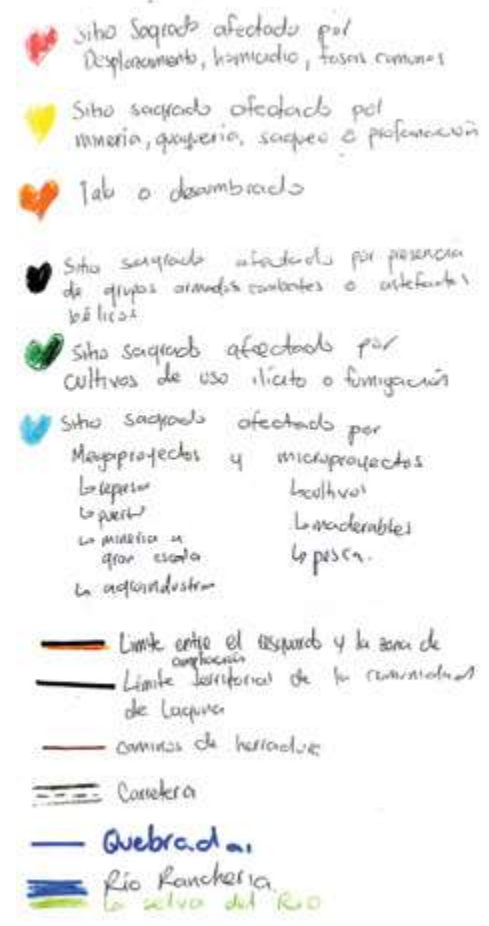 Sitio Sagrado afectado por
Desplazamiento, homicidio, fosas comunes
Sitio sagrado afectado por
minería, guaquería, saqueo o profanación
Tala o desambrado
Sitio sagrado afectado por presencia
de grupos armados combates o artefactos
bélicos
Sitio sagrado afectado por
cultivos de uso ilícito o fumigación
Sitio sagrado afectado por
Megaproyectos y microproyectos
↳ represa
↳ cultivos
↳ puerto
↳ maderables
↳ minería a
gran escala
↳ pesca.
↳ agroindustria
Limite entre el resguardo y la zona de
ampliación
Límite territorial de la comunidad
de Laguna
caminos de herradura
Carretera
Quebradas
Río Ranchería
la selva del Río